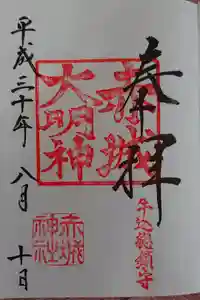 奉拝
赤城
大明神
牛込総鎮守
赤城
神社
平成三十年 八月 十日